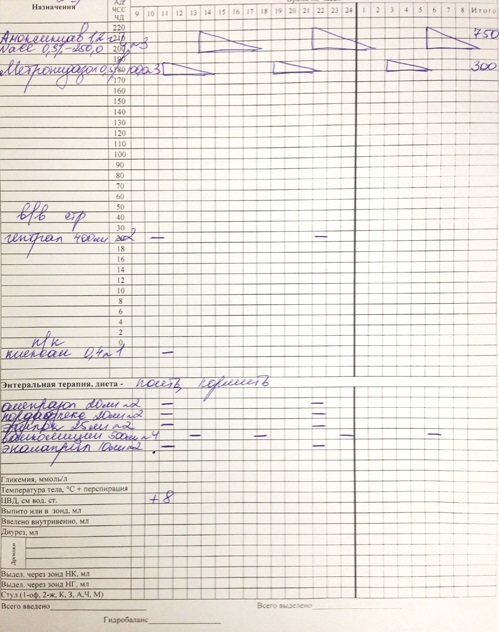 Назначения
АД
ЧСС
ЧД
9 10 11 12 13 14 15 16 17 18 19 20 21 22 23 24 1 2 3 4 5 6 7 8 Итого
220
Амоксиклав 1,2 г
NaCl 0,9%-250,0 №3
200
750
Метронидазол
180
300
170
160
150
140
130
120
110
100
90
80
70
60
50
в/в стр
40
30
гептрал 400мг №2
20
18
16
14
12
10
8
6
4
2
п/к
0
клексан 0,4 №1
Энтеральная терапия, диета - поить, кормить
омепразол 20мг №2
20мг №2
25мг №2
500мг №4
эналаприл 10мг №2
Гликемия, ммоль/л
Температура тела, °С + перспирация
ЦВД, см вод. ст. +8
Выпито или в зонд, мл
Введено внутривенно, мл
Диурез, мл
Дренажи
Выдел. через зонд НК, мл
Выдел. через зонд НГ, мл
Стул (1-оф, 2-ж, К, З, А,Ч, М)
Всего введено
Всего выделено
Гидробаланс